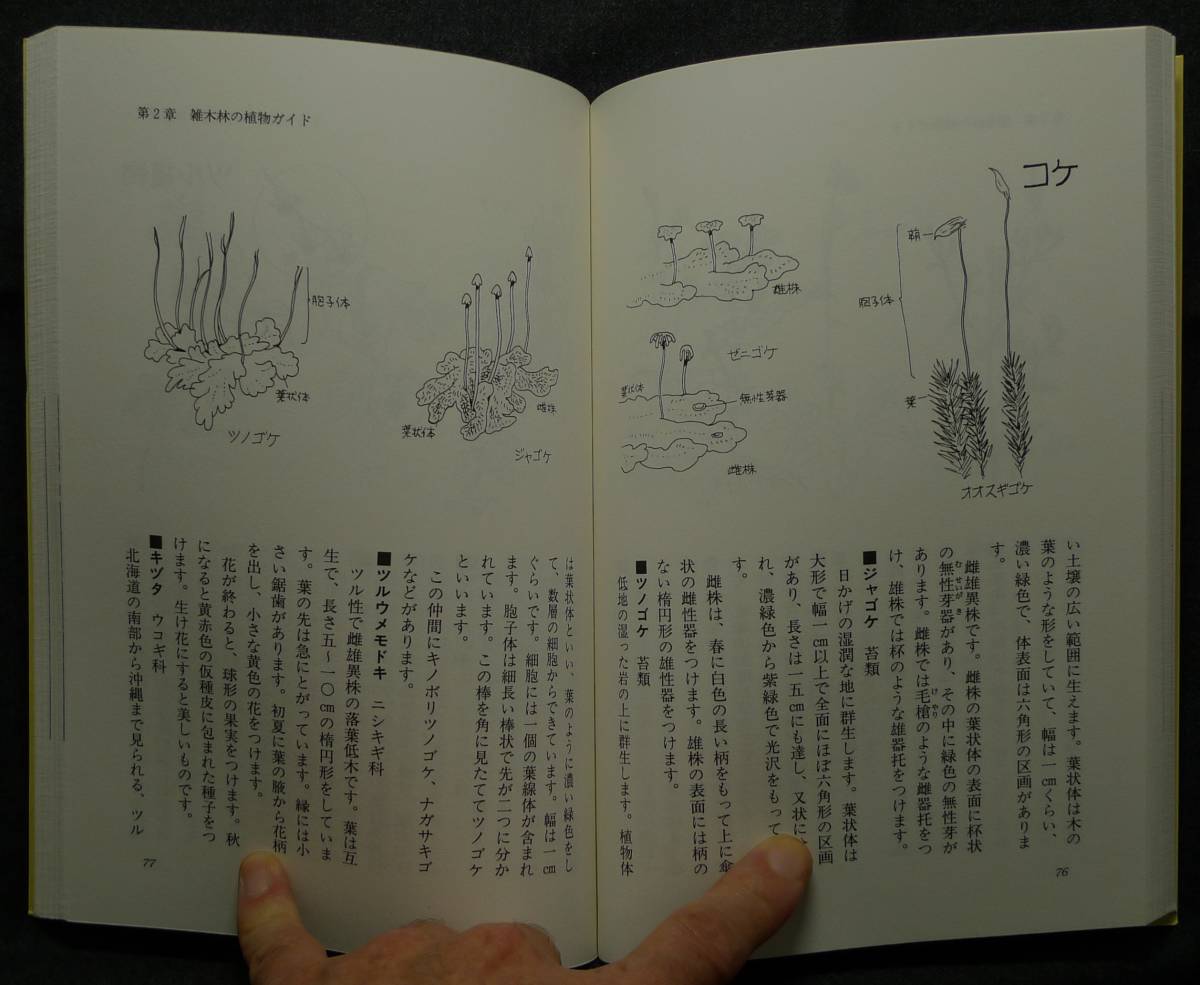 コケ
蒴
胞子体
葉
オオスギゴケ
雄株
ゼニゴケ
葉状体
無性芽器
雌株
い土壌の広い範囲に生えます。葉状体は木の
葉のような形をしていて、幅は一cmくらい、
濃い緑色で、体表面は六角形の区画がありま
す。
雌雄異株です。雌株の葉状体の表面に杯状
の無性芽器があり、その中に緑色の無性芽が
むせいがき
あります。雌株では毛槍のような雌器托をつ
けやり
け、雄株では杯のような雄器托をつけます。
■ジャゴケ 苔類
日かげの湿潤な地に群生します。葉状体は
大形で幅一cm以上で全面にほぼ六角形の区画
があり、長さは一五cmにも達し、又状に
れ、濃緑色から紫緑色で光沢をもって
す。
雌株は、春に白色の長い柄をもって上に傘
状の雌性器をつけます。雄株の表面には柄の
ない楕円形の雄性器をつけます。
■ツノゴケ 苔類
低地の湿った岩の上に群生します。植物体
76
第2章 雑木林の植物ガイド
胞子体
葉状体
ツノゴケ
雌株
葉状体
ジャゴケ
は葉状体といい、葉のように濃い緑色をし
て、数層の細胞からできています。幅は一cm
ぐらいです。細胞には一個の葉緑体が含まれ
ます。胞子体は細長い棒状で先が二つに分か
れています。この棒を角に見たててツノゴケ
といいます。
この仲間にキノボリツノゴケ、ナガサキゴ
ケなどがあります。
■ツルウメモドキ ニシキギ科
ツル性で雌雄異株の落葉低木です。葉は互
生で、長さ五～一〇cmの楕円形をしていま
す。葉の先は急にとがっています。縁には小
さい鋸歯があります。初夏に葉の腋から花柄
を出し、小さな黄色の花をつけます。
花が終わると、球形の果実をつけます。秋
になると黄赤色の仮種皮に包まれた種子をつ
けます。生け花にすると美しいものです。
■キヅタ ウコギ科
北海道の南部から沖縄まで見られる、ツル
77